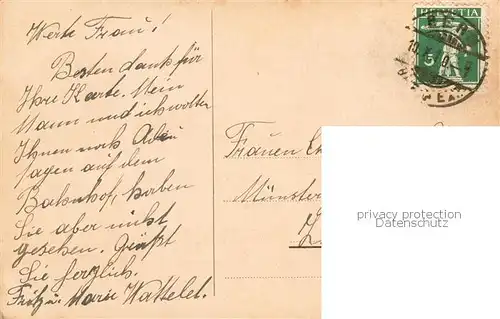 Werte Frau!
Besten dank für
Ihre Karte. Mein
Mann und ich wollten
Ihnen noch Adieu
sagen auf dem
Bahnhof, haben
Sie aber nicht
gesehen. Grüßt
Sie herzlich.
Fritz u. Marie Wattelet.
HELVETIA
5
Frauen
Münster
privacy protection